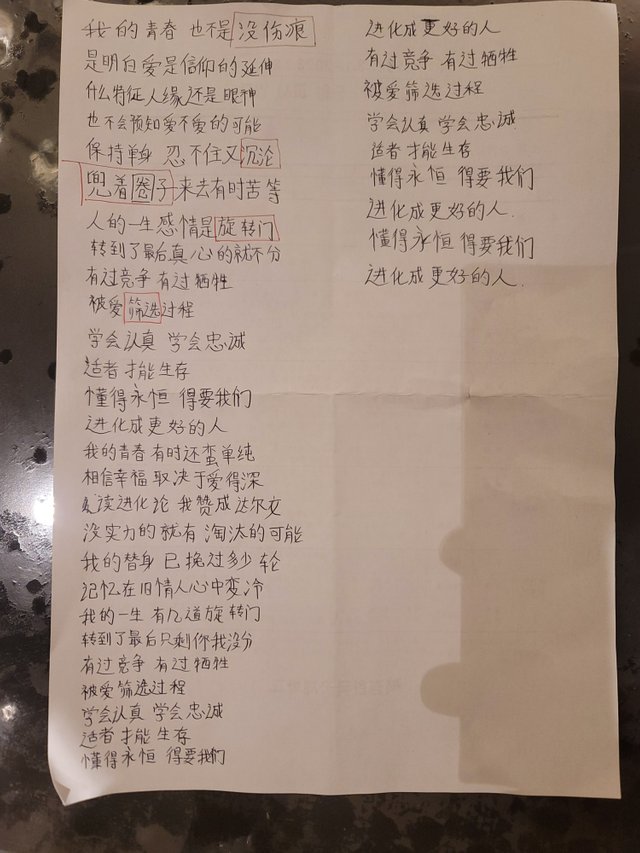 我的青春 也不是 没伤痕
是明白爱是信仰的延伸
什么特征人缘还是眼神
也不会预知爱不爱的可能
保持单身 忍不住又沉沦
兜着圈子来去有时苦等
人的一生感情是旋转门
转到了最后真心的就不分
有过竞争 有过牺牲
被爱筛选过程
学会认真 学会忠诚
适者才能生存
懂得永恒 得要我们
进化成更好的人
我的青春有时还蛮单纯
相信幸福 取决于爱得深
读进化论 我赞成达尔文
没实力的就有 淘汰的可能
我的替身 已换过多少轮
记忆在旧情人心中变冷
我的一生 有几道旋转门
转到了最后只剩你我没分
有过竞争 有过牺牲
被爱筛选过程
学会认真 学会忠诚
适者才能生存
懂得永恒 得要我们
进化成更好的人
有过竞争 有过牺牲
被爱筛选过程
学会认真 学会忠诚
适者才能生存
懂得永恒 得要我们
进化成更好的人.
懂得永恒 得要我们
进化成更好的人.